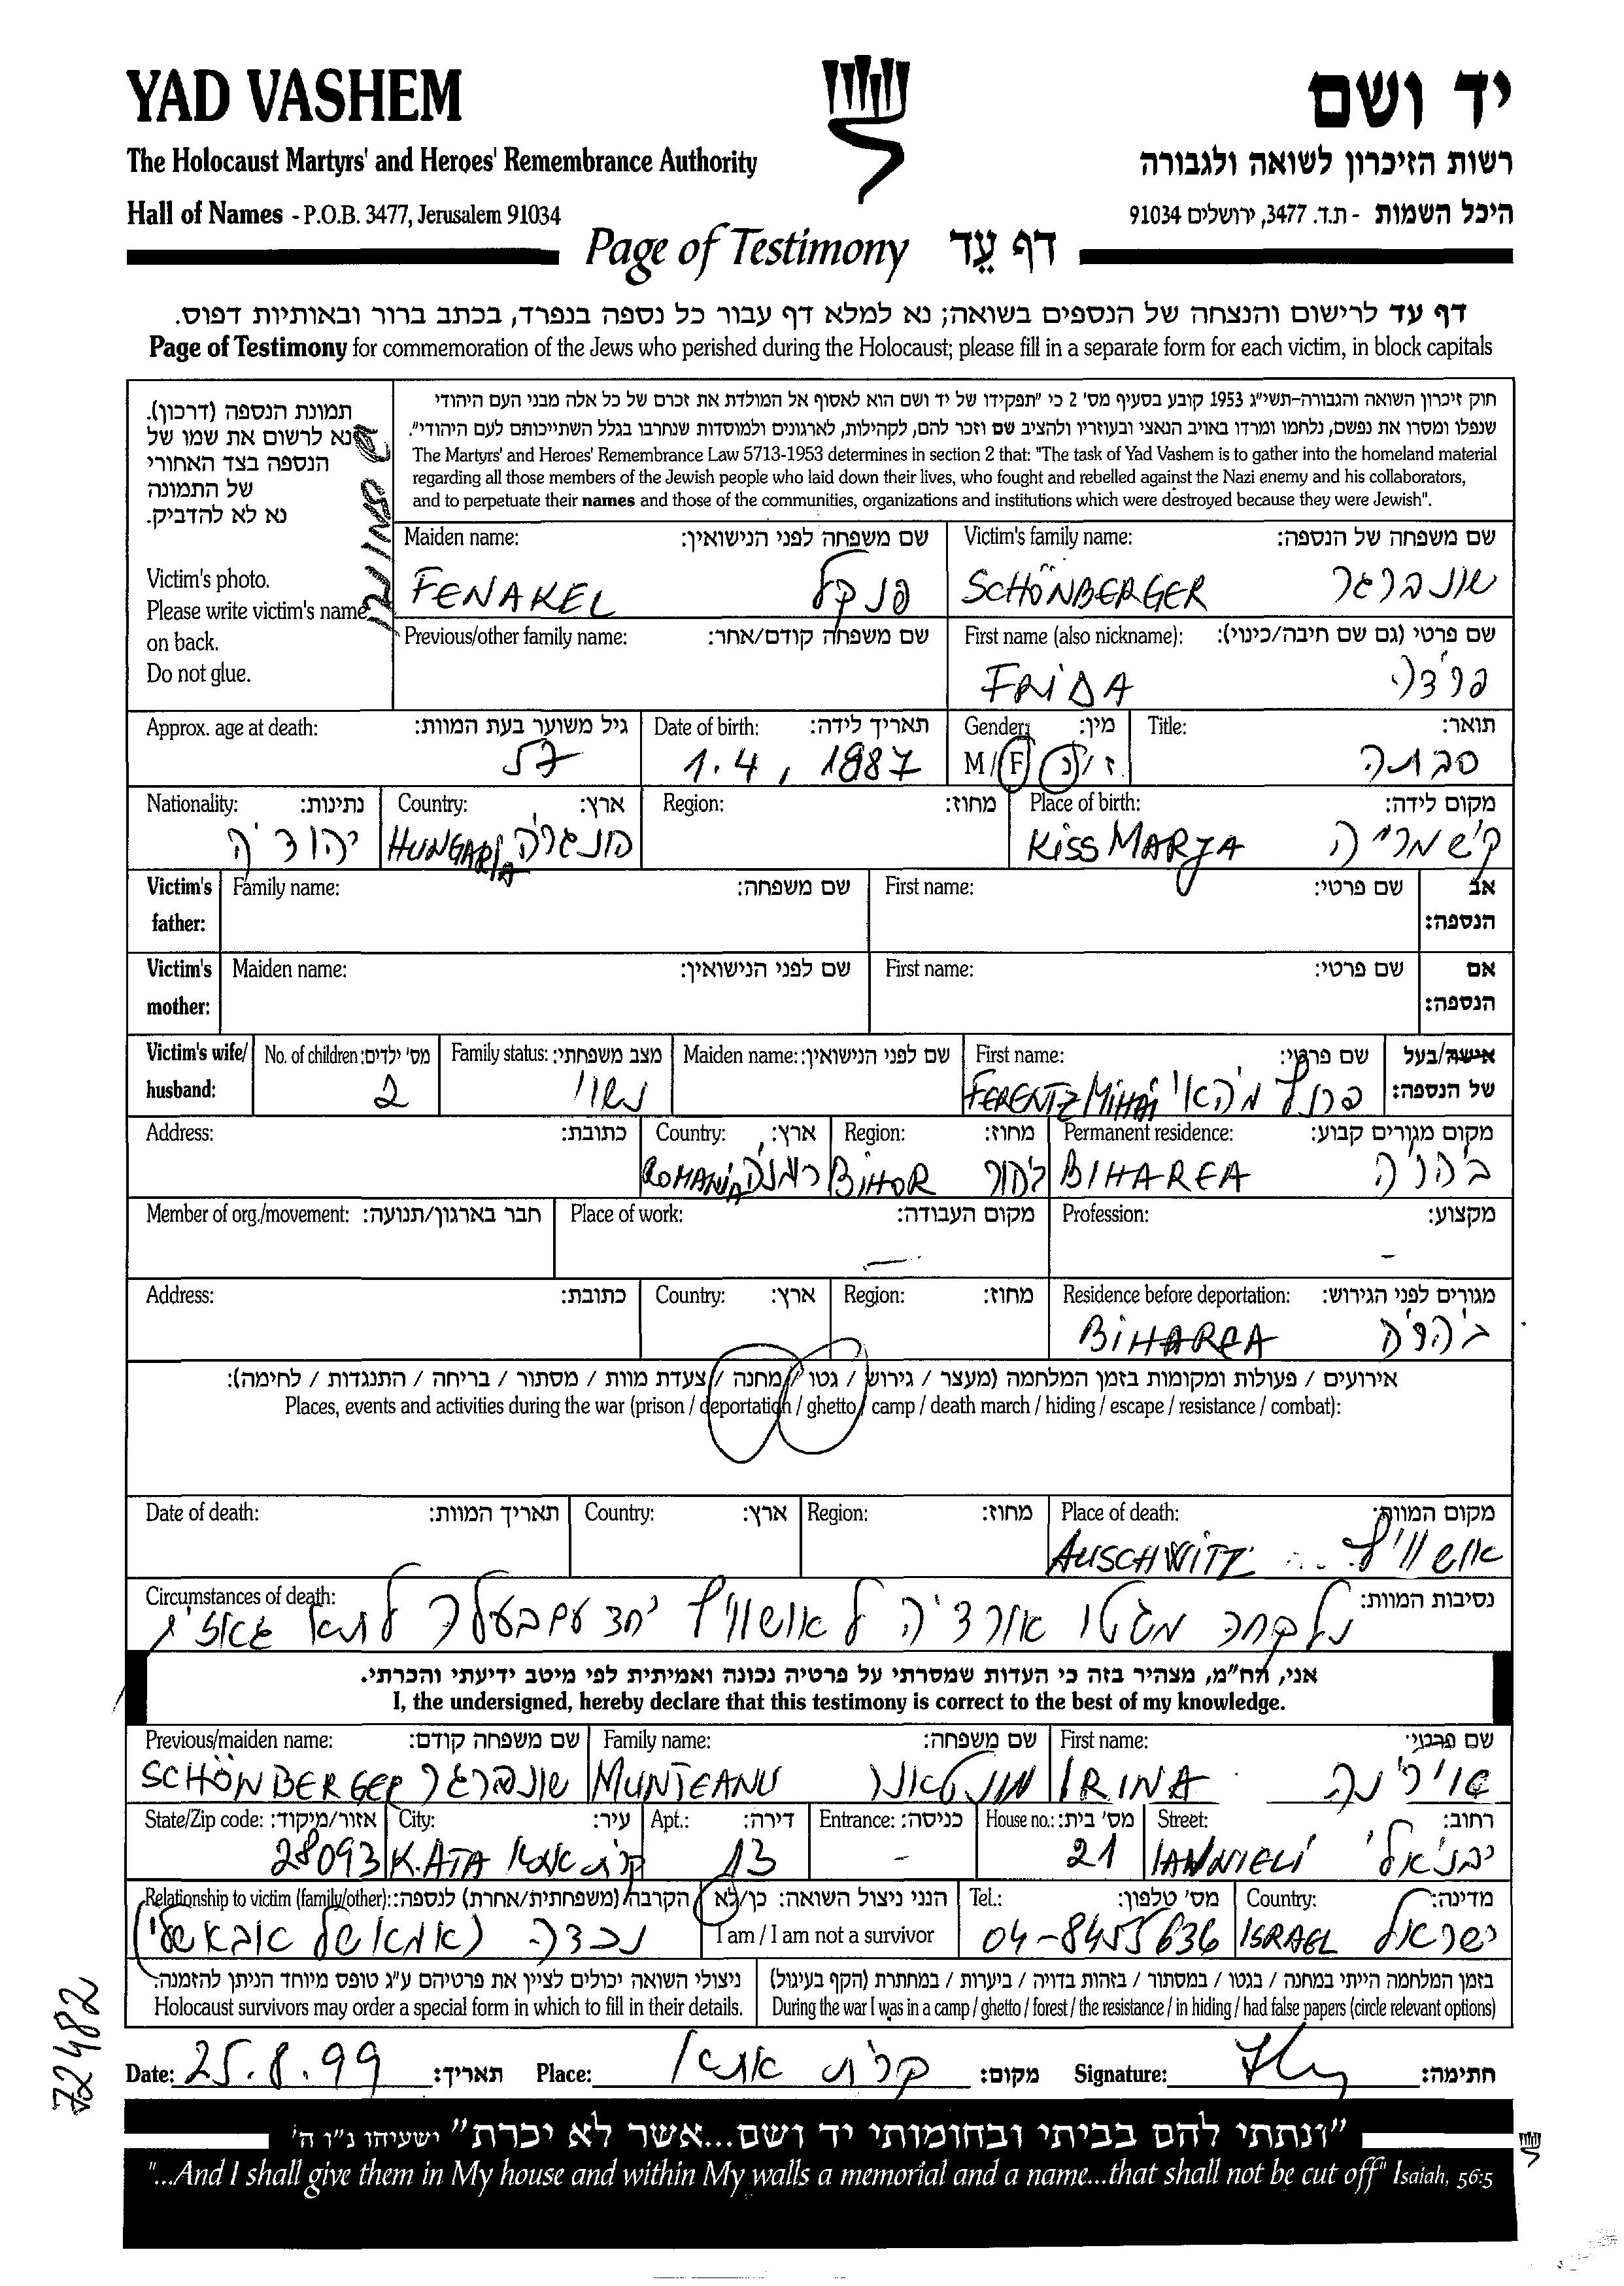 YAD VASHEM
יד ושם
The Holocaust Martyrs' and Heroes' Remembrance Authority
רשות הזיכרון לשואה ולגבורה
Hall of Names - P.O.B. 3477, Jerusalem 91034
היכל השמות - ת.ד. 3477, ירושלים 91034
Page of Testimony דף עֵד
דף עד לרישום והנצחה של הנספים בשואה; נא למלא דף עבור כל נספה בנפרד, בכתב ברור ובאותיות דפוס.
Page of Testimony for commemoration of the Jews who perished during the Holocaust; please fill in a separate form for each victim, in block capitals
תמונת הנספה (דרכון).
נא לרשום את שמו של
הנספה בצד האחורי
של התמונה
נא לא להדביק.
Victim's photo.
Please write victim's name
on back.
Do not glue.
חוק זיכרון השואה והגבורה-תשי"ג 1953 קובע בסעיף מס' 2 כי "תפקידו של יד ושם הוא לאסוף אל המולדת את זכרם של כל אלה מבני העם היהודי
שנפלו ומסרו את נפשם, נלחמו ומרדו באויב הנאצי ובעוזריו ולהציב שם וזכר להם, לקהילות, לארגונים ולמוסדות שנחרבו בגלל השתייכותם לעם היהודי".
The Martyrs' and Heroes' Remembrance Law 5713-1953 determines in section 2 that: "The task of Yad Vashem is to gather into the homeland material
regarding all those members of the Jewish people who laid down their lives, who fought and rebelled against the Nazi enemy and his collaborators,
and to perpetuate their names and those of the communities, organizations and institutions which were destroyed because they were Jewish".
Maiden name: שם משפחה לפני הנישואין: Victim's family name: שם משפחה של הנספה:
FENAKEL פנקל SCHÖNBERGER שונברגר
Previous/other family name: שם משפחה קודם/אחר: First name (also nickname): שם פרטי (גם שם חיבה/כינוי):
FRIDA פרידה
Approx. age at death: גיל משוער בעת המוות: Date of birth: תאריך לידה: Gender: מין: Title: תואר:
57 1.4, 1887 M/F ז/נ סבתה
Nationality: נתינות: Country: ארץ: Region: מחוז: Place of birth: מקום לידה:
יהודיה HUNGARIA הונגריה KISS MARJA קישמריה
Victim's father: Family name: שם משפחה: First name: שם פרטי: אב הנספה:
Victim's mother: Maiden name: שם לפני הנישואין: First name: שם פרטי: אם הנספה:
Victim's wife/ husband: No. of children: מס' ילדים: Family status: מצב משפחתי: Maiden name: שם לפני הנישואין: First name: שם פרטי: אישה/בעל של הנספה:
2 נשוי FERENTZ MIHAI פרנץ מיהאי
Address: כתובת: Country: ארץ: Region: מחוז: Permanent residence: מקום מגורים קבוע:
ROMANIA רומניה BIHOR ביהור BIHAREA ביהריה
Member of org./movement: חבר בארגון/תנועה: Place of work: מקום העבודה: Profession: מקצוע:
— -
Address: כתובת: Country: ארץ: Region: מחוז: Residence before deportation: מגורים לפני הגירוש:
BIHAREA ביהריה
אירועים / פעולות ומקומות בזמן המלחמה (מעצר / גירוש / גטו / מחנה / צעדת מוות / מסתור / בריחה / התנגדות / לחימה):
Places, events and activities during the war (prison / deportation / ghetto / camp / death march / hiding / escape / resistance / combat):
Date of death: תאריך המוות: Country: ארץ: Region: מחוז: Place of death: מקום המוות:
AUSCHWITZ אושוויץ
Circumstances of death: נסיבות המוות:
נלקחה מגטו אורדיה לאושוויץ יחד עם בעלה לתא גאזים
אני, הח"מ, מצהיר בזה כי העדות שמסרתי על פרטיה נכונה ואמיתית לפי מיטב ידיעתי והכרתי.
I, the undersigned, hereby declare that this testimony is correct to the best of my knowledge.
Previous/maiden name: שם משפחה קודם: Family name: שם משפחה: First name: שם פרטי:
SCHÖNBERGER שונברגר MUNTEANU מונטאנו IRINA אירינה
State/Zip code: אזור/מיקוד: City: עיר: Apt.: דירה: Entrance: כניסה: House no.: מס' בית: Street: רחוב:
28093 K.ATA קרית אתא 13 - 21 IANNIELI יבניאלי
Relationship to victim (family/other): הקרבה (משפחתית/אחרת) לנספה: הנני ניצול השואה: כן/לא Tel.: מס' טלפון: Country: מדינה:
נכדה (אמא של אבא שלי) I am / I am not a survivor 04-8455636 ISRAEL ישראל
ניצולי השואה יכולים לציין את פרטיהם ע"ג טופס מיוחד הניתן להזמנה. בזמן המלחמה הייתי במחנה / בגטו / במסתור / בזהות בדויה / ביערות / במחתרת (הקף בעיגול)
Holocaust survivors may order a special form in which to fill in their details. During the war I was in a camp / ghetto / forest / the resistance / in hiding / had false papers (circle relevant options)
72482
Date: 25.8.99 תאריך: Place: קרית אתא מקום: Signature: חתימה:
"ונתתי להם בביתי ובחומותי יד ושם...אשר לא יכרת" ישעיהו נ"ו ה'
"...And I shall give them in My house and within My walls a memorial and a name...that shall not be cut off" Isaiah, 56:5